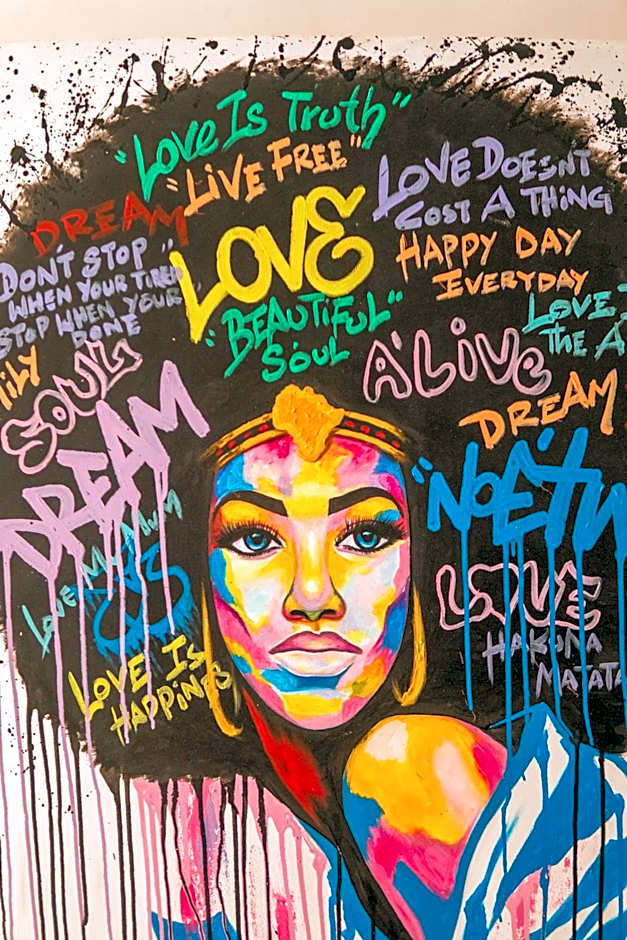 "Love Is Truth"
"LIVE FREE"
LOVE DOESNT
COST A THING
DREAM
LOVE
HAPPY DAY
EVERYDAY
DON'T STOP
WHEN YOUR TIRED
STOP WHEN YOUR
DONE
"BEAUTIFUL"
SOUL
LOVE
THE A
SOUL
ALIVE
DREAM
DREAM
LOVE
LOVE IS
HAPPINES
HAKUNA
MATATA